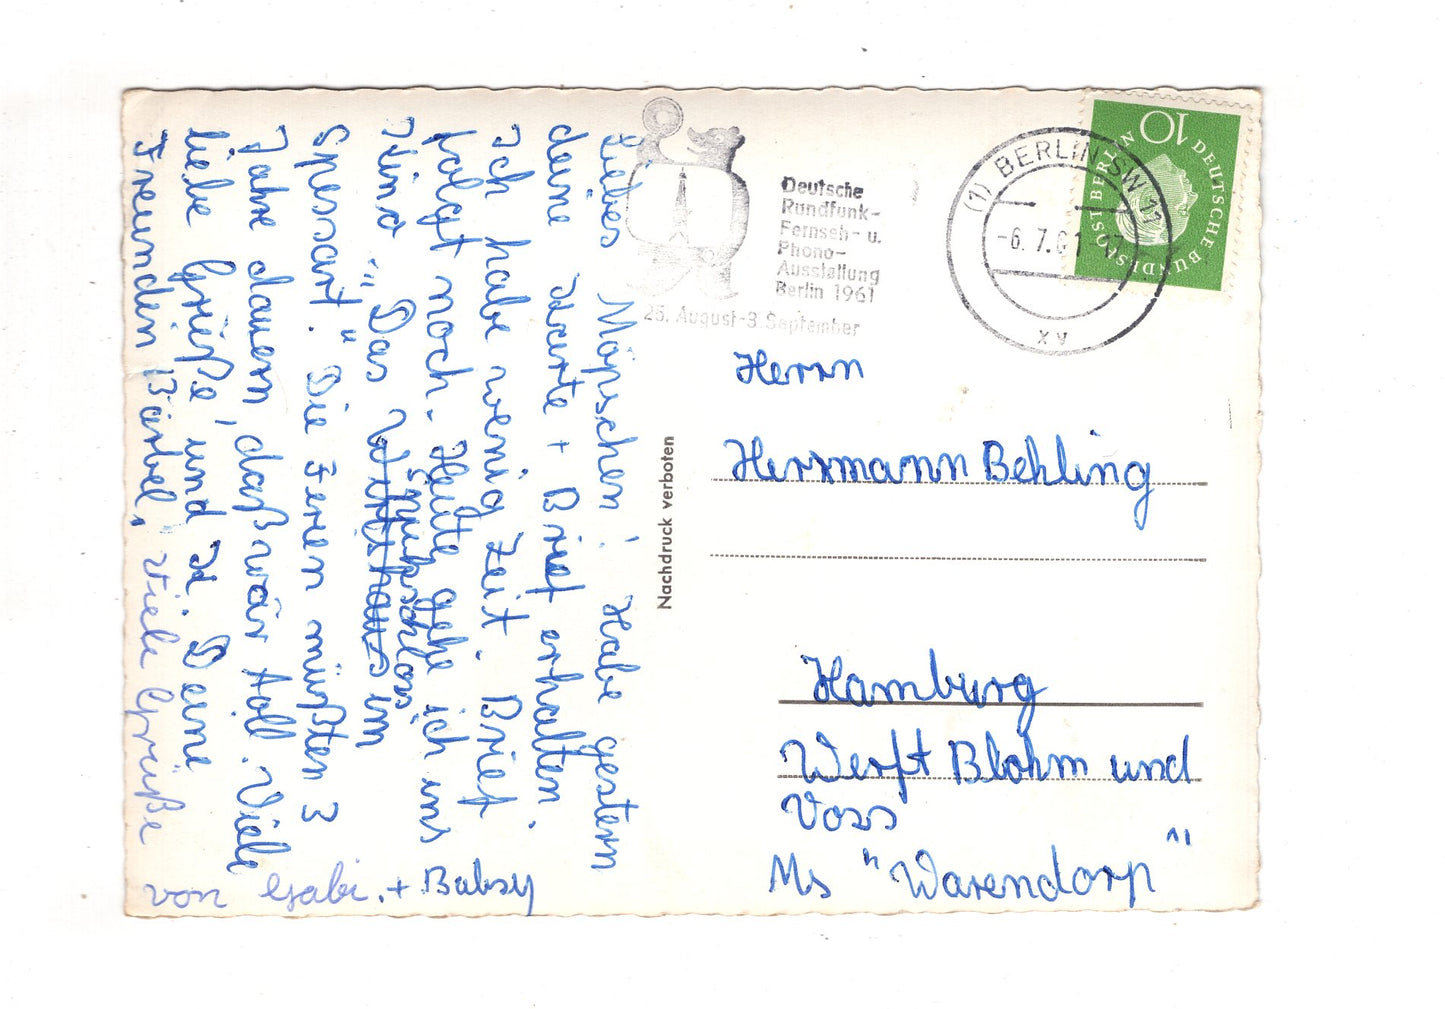 Liebes Möpschen! Habe gestern
deine Karte + Brief erhalten.
Ich habe wenig Zeit. Brief
folgt noch. Heute gehe ich ins
Kino "Das Wirtshaus im
Spukschloss
Spessart." Die Feren müßten 3
Jahre dauern, daß wär toll. Viele
liebe Grüße und K. Deine
Freundin Bärbel. Viele Grüße
von Gabi. + Babsy
Deutsche
Rundfunk-
Fernseh- u.
Phono-
Ausstellung
Berlin 1961
25. August-3. September
(1) BERLIN SW 11
-6. 7. 61-17
xv
10
DEUTSCHE BUNDESPOST BERLIN
Nachdruck verboten
Herrn
Herrmann Behling
Hamburg
Werft Blohm und
Voss
Ms "Warendorp"